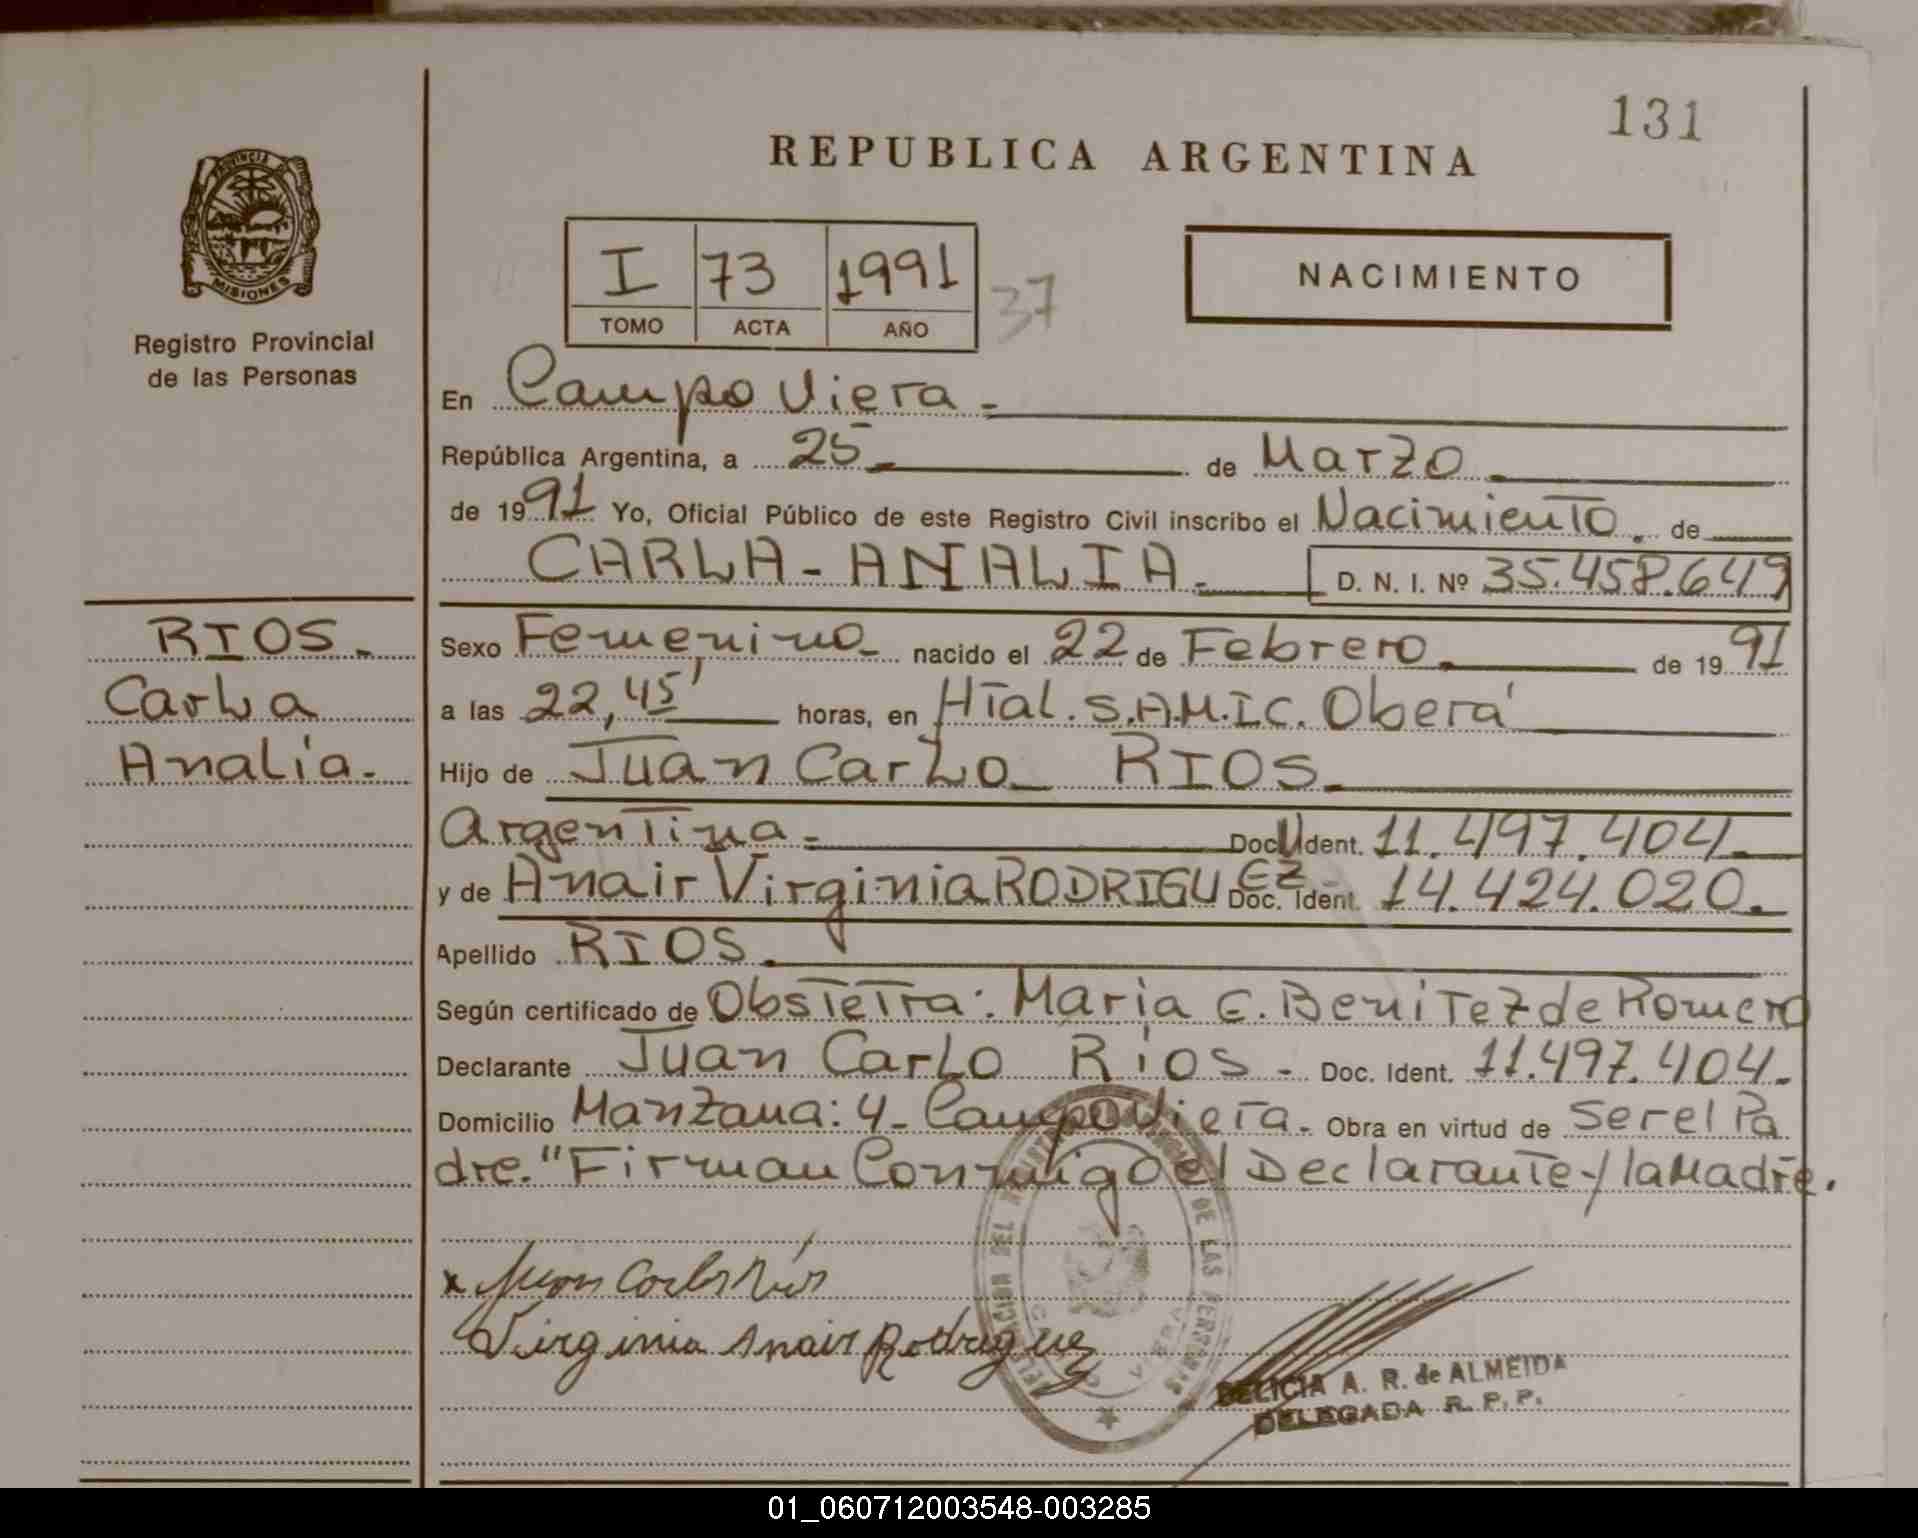 131
REPUBLICA ARGENTINA
PROVINCIA
MISIONES
Registro Provincial
de las Personas
I 73 1991 37
TOMO ACTA AÑO
NACIMIENTO
En Campo Viera.-
República Argentina, a 25 de Marzo
de 1991 Yo, Oficial Público de este Registro Civil inscribo el Nacimiento. de
CARLA-ANALIA.- D. N. I. Nº 35.458.649
RIOS.
Carla
Analía.-
Sexo Femenino nacido el 22 de Febrero de 1991
a las 22,45' horas, en Htal. S.A.M.I.C. Oberá
Hijo de Juan Carlo RIOS.
Argentina.- Doc. Ident. 11.497.404.
y de Anair Virginia RODRIGUEZ Doc. Ident. 14.424.020.
Apellido RIOS.
Según certificado de Obstetra: Maria E. Benitez de Romero
Declarante Juan Carlo Rios.- Doc. Ident. 11.497.404.
Domicilio Manzana: 4- Campo Viera. Obra en virtud de Ser el Pa
dre. "Firman Conmigo el Declarante y la Madre.
x Juan Carlos Ríos
Virginia Anair Rodriguez
DE LAS PERSONAS
CAMPO VIERA
DELICIA A. R. de ALMEIDA
DELEGADA R. P. P.
01_060712003548-003285